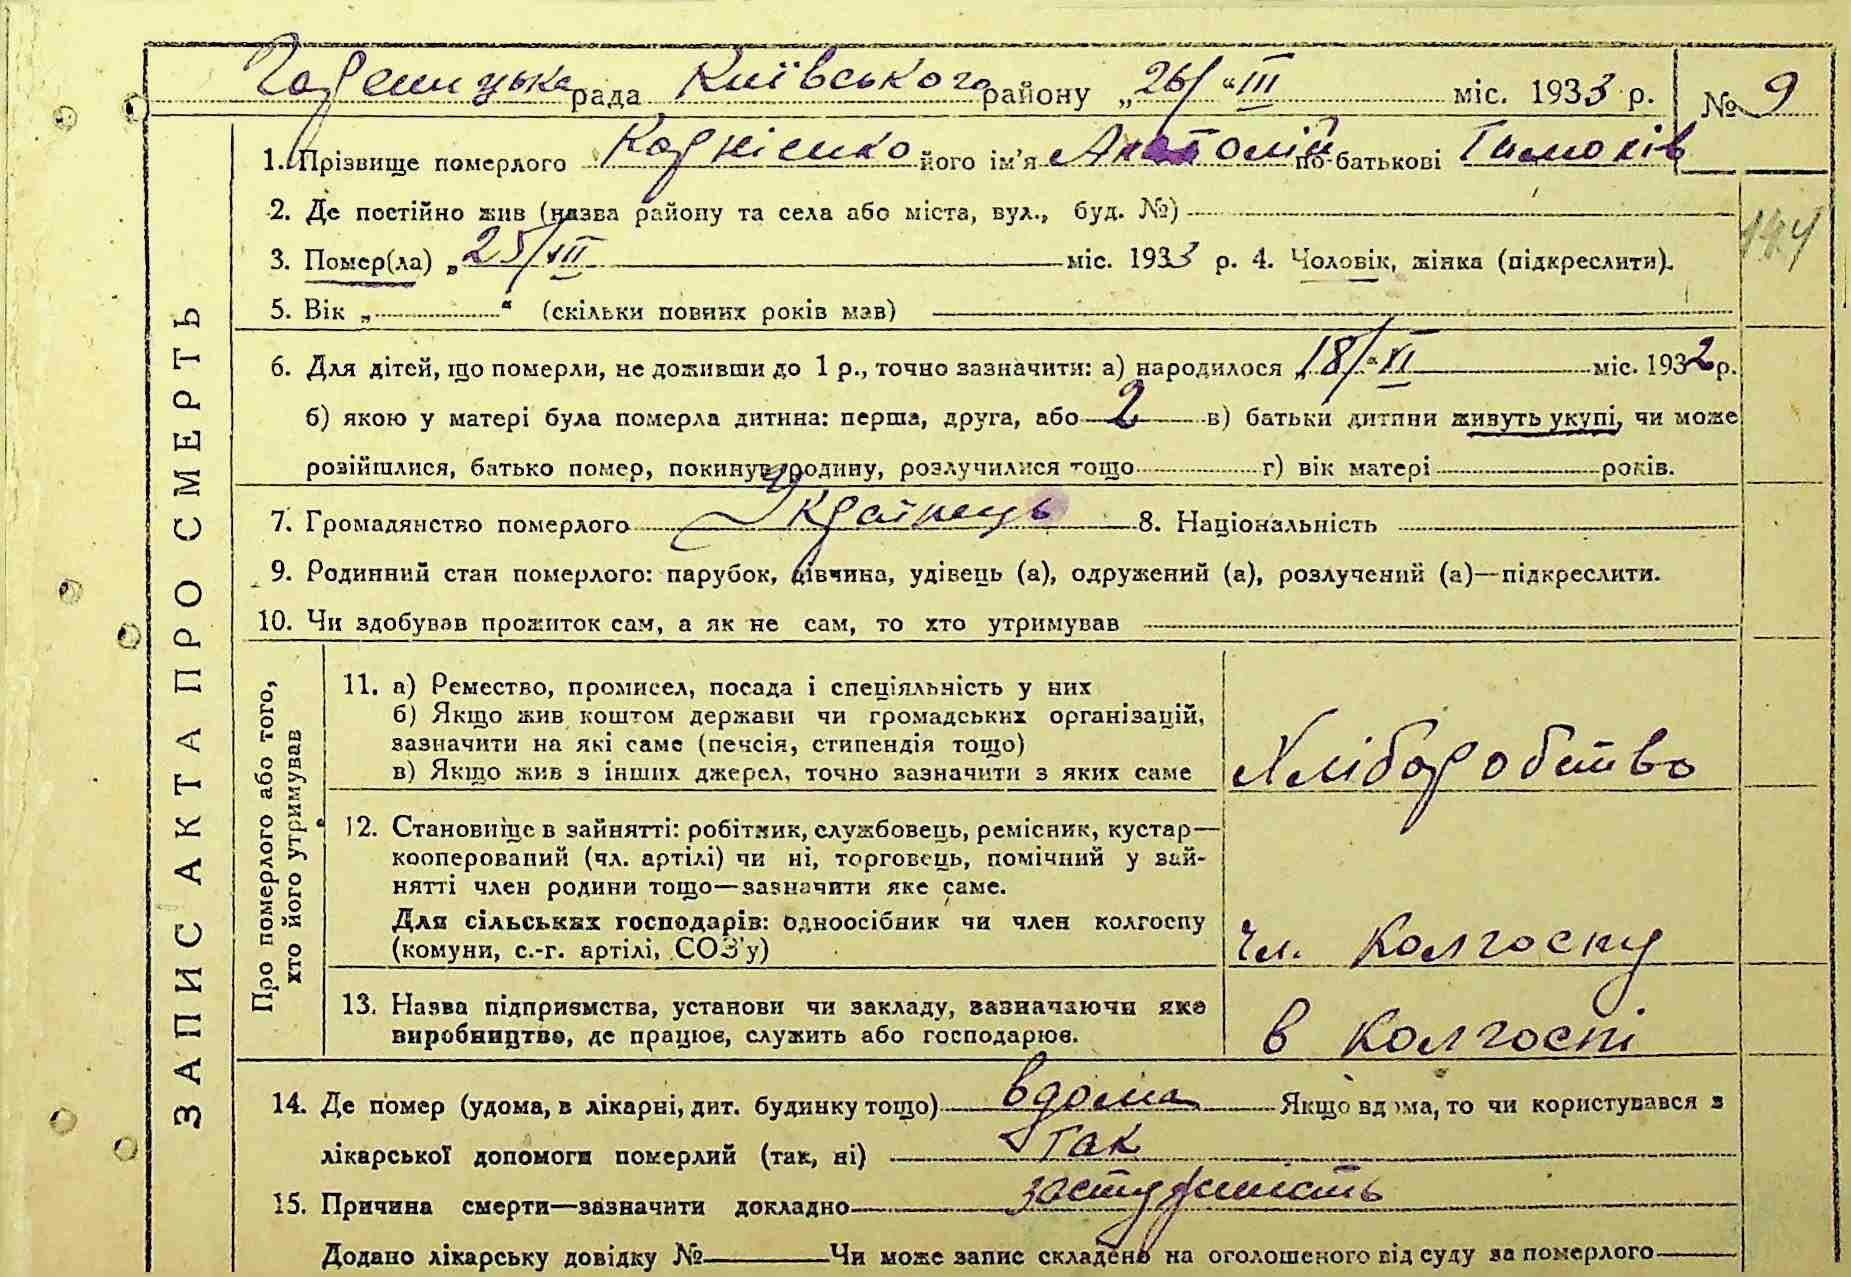 рада Київського району „26/“ III міс. 1933 р. № 9
1. Прізвище померлого Корнієнко його ім'я Анатолій по-батькові Тимохів
2. Де постійно жив (назва району та села або міста, вул., буд. №)
144
3. Помер(ла) „25/III міс. 1933 р. 4. Чоловік, жінка (підкреслити).
5. Вік „ “ (скільки повних років мав)
6. Для дітей, що померли, не доживши до 1 р., точно зазначити: а) народилося „18/“ XI міс. 1932 р.
б) якою у матері була померла дитина: перша, друга, або 2 в) батьки дитини живуть укупі, чи може
розійшлися, батько помер, покинув родину, розлучилися тощо г) вік матері років.
7. Громадянство померлого Українець 8. Національність
9. Родинний стан померлого: парубок, дівчина, удівець (а), одружений (а), розлучений (а)—підкреслити.
10. Чи здобував прожиток сам, а як не сам, то хто утримував
ЗАПИС АКТА ПРО СМЕРТЬ
Про померлого або того,
хто його утримував
11. а) Ремество, промисел, посада і спеціяльність у них
б) Якщо жив коштом держави чи громадських організацій,
зазначити на які саме (пенсія, стипендія тощо)
в) Якщо жив з інших джерел, точно зазначити з яких саме
Хліборобство
12. Становище в зайнятті: робітник, службовець, ремісник, кустар—
кооперований (чл. артілі) чи ні, торговець, помічний у зай-
нятті член родини тощо—зазначити яке саме.
Для сільських господарів: одноосібник чи член колгоспу
(комуни, с.-г. артілі, СОЗ'у)
чл. колгоспу
13. Назва підприємства, установи чи закладу, зазначаючи яке
виробництво, де працює, служить або господарює.
в колгоспі
14. Де помер (удома, в лікарні, дит. будинку тощо) вдома Якщо вдома, то чи користувався з
лікарської допомоги померлий (так, ні) так
15. Причина смерти—зазначити докладно
Додано лікарську довідку № Чи може запис складено на оголошеного від суду за померлого